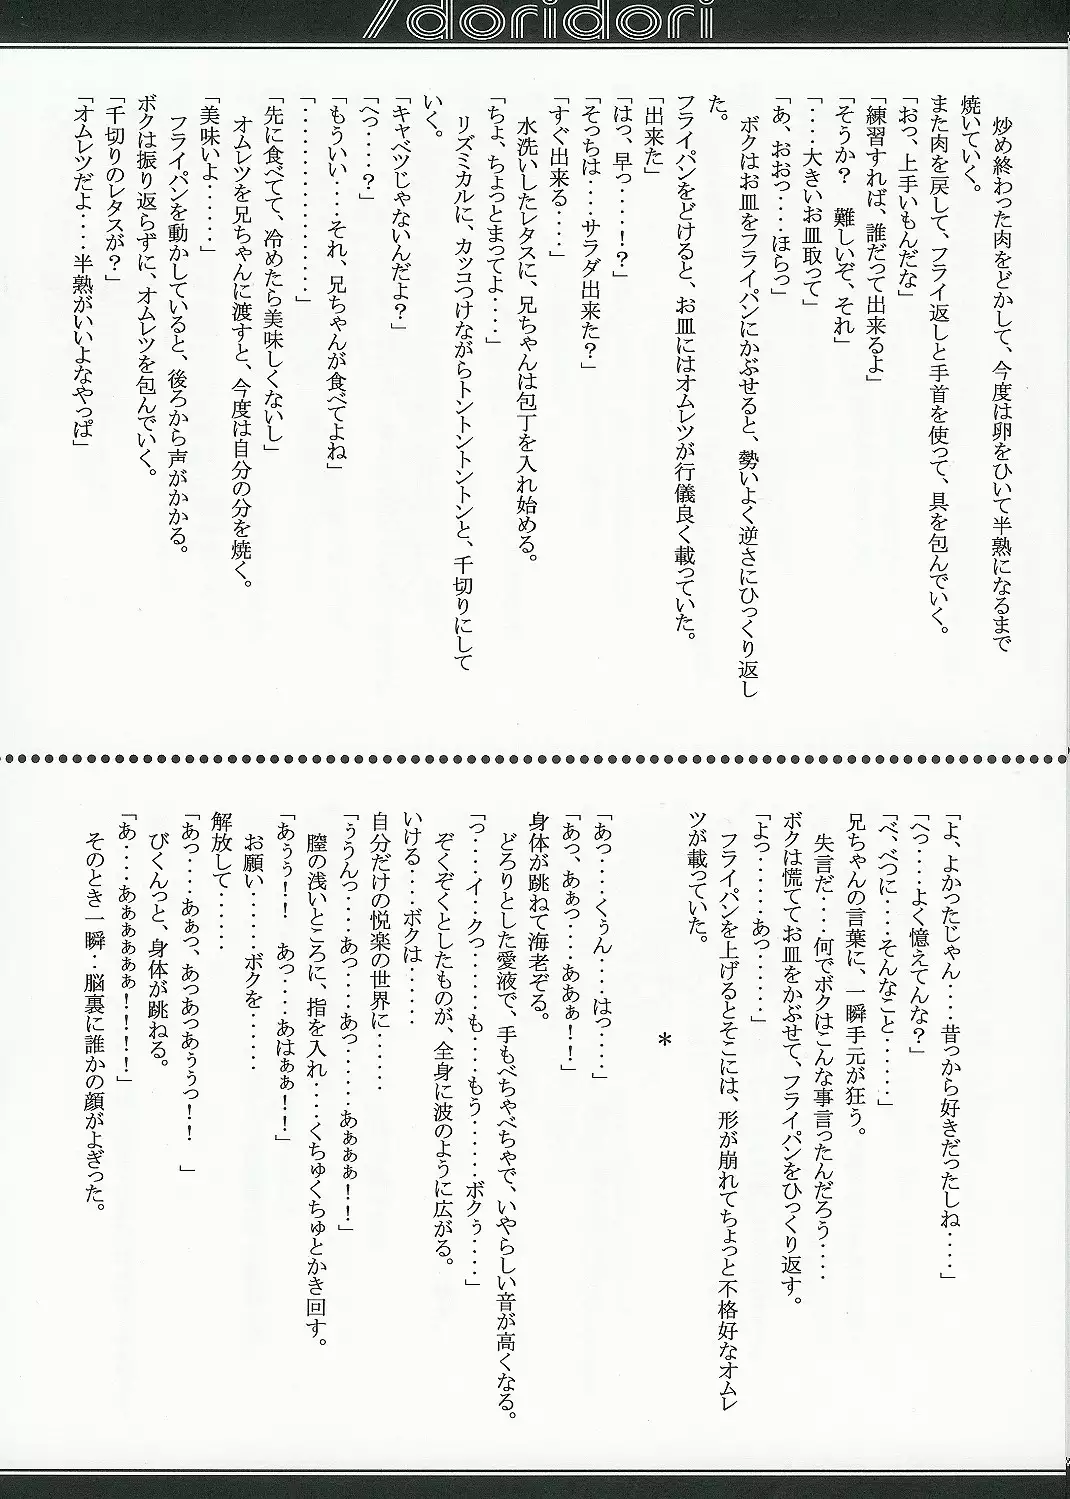 /doridori
炒め終わった肉をどかして、今度は卵をひいて半熟になるまで
焼いていく。
また肉を戻して、フライ返しと手首を使って、具を包んでいく。
「おっ、上手いもんだな」
「練習すれば、誰だって出来るよ」
「そうか？　難しいぞ、それ」
「・・・・大きいお皿取って」
「あ、おおっ・・・・ほらっ」
ボクはお皿をフライパンにかぶせると、勢いよく逆さにひっくり返し
た。
フライパンをどけると、お皿にはオムレツが行儀良く載っていた。
「出来た」
「はっ、早っ・・・・！？」
「そっちは・・・・サラダ出来た？」
「すぐ出来る・・・・」
水洗いしたレタスに、兄ちゃんは包丁を入れ始める。
「ちょ、ちょっとまってよ・・・・」
リズミカルに、カッコつけながらトントントントンと、千切りにして
いく。
「キャベツじゃないんだよ？」
「へっ・・・・？」
「もういい・・・・それ、兄ちゃんが食べてよね」
「・・・・・・・・・・・・・・」
「先に食べてて、冷めたら美味しくないし」
オムレツを兄ちゃんに渡すと、今度は自分の分を焼く。
「美味いよ・・・・・・」
フライパンを動かしていると、後ろから声がかかる。
ボクは振り返らずに、オムレツを包んでいく。
「千切りのレタスが？」
「オムレツだよ・・・・半熟がいいよなやっぱ」
「よ、よかったじゃん・・・・昔っから好きだったしね・・・・」
「へっ・・・・よく憶えてんな？」
「べ、べつに・・・・そんなこと・・・・・・」
兄ちゃんの言葉に、一瞬手元が狂う。
失言だ・・・・何でボクはこんな事言ったんだろう・・・・
ボクは慌ててお皿をかぶせて、フライパンをひっくり返す。
「よっ・・・・・・あっ・・・・・・」
フライパンを上げるとそこには、形が崩れてちょっと不格好なオムレ
ツが載っていた。
＊
「あっ・・・・くぅん・・・・はっ・・・・」
「あっ、あぁっ・・・・ああぁ！！」
身体が跳ねて海老ぞる。
どろりとした愛液で、手もべちゃべちゃで、いやらしい音が高くなる。
「っ・・・・イ・・クっ・・・・も・・・・もう・・・・・・ボクぅ・・・・」
ぞくぞくとしたものが、全身に波のように広がる。
いける・・・・ボクは・・・・・・
自分だけの悦楽の世界に・・・・・・
「ううんっ・・・・あっ・・・・あっ・・・・・・あぁぁぁ！！」
膣の浅いところに、指を入れ・・・・くちゅくちゅとかき回す。
「あうぅ！！　あっ・・・・あはぁぁ！！」
お願い・・・・・・ボクを・・・・・・
解放して・・・・・・
「あっ・・・・あぁっ、あっあっあううっ！！　」
びくんっと、身体が跳ねる。
「あ・・・・あぁぁぁぁぁ！！！！」
そのとき一瞬・・脳裏に誰かの顔がよぎった。